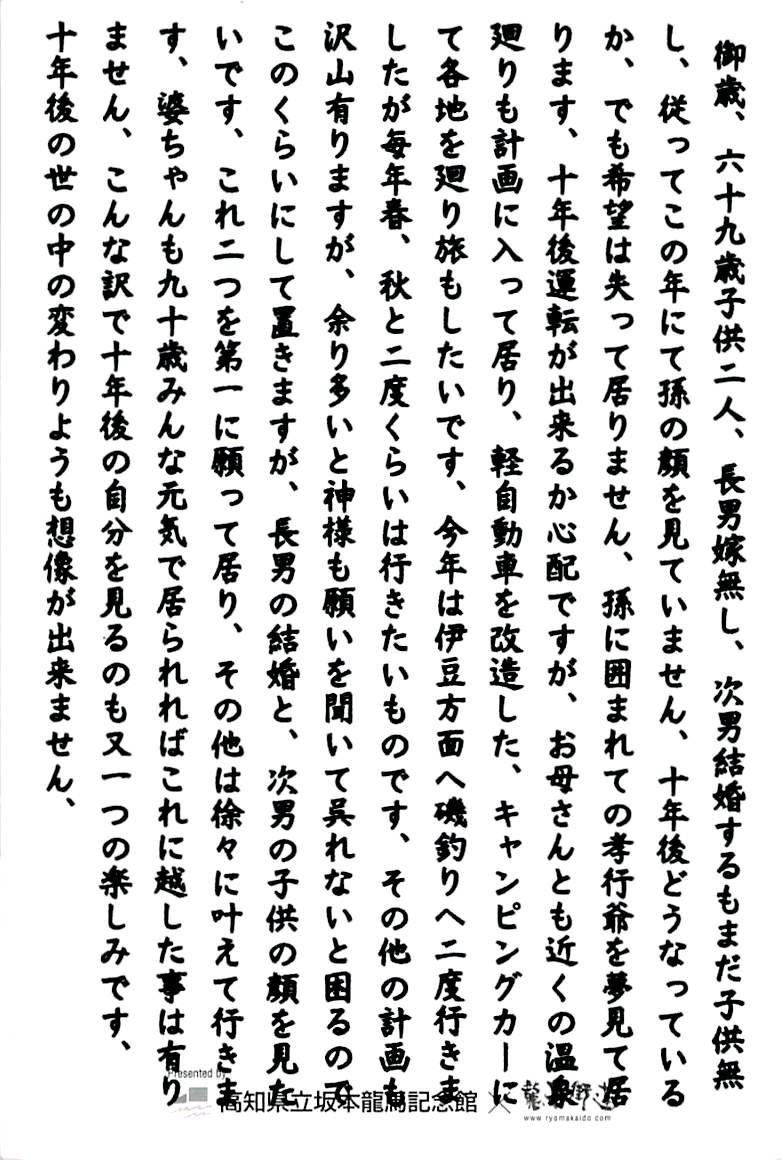 御歳、六十九歳子供二人、長男嫁無し、次男結婚するもまだ子供無
し、従ってこの年にて孫の顔を見ていません、十年後どうなっている
か、でも希望は失って居りません、孫に囲まれての孝行爺を夢見て居
ります、十年後運転が出来るか心配ですが、お母さんとも近くの温泉
廻りも計画に入って居り、軽自動車を改造した、キャンピングカーに
て各地を廻り旅もしたいです、今年は伊豆方面へ磯釣りへ二度行きま
したが毎年春、秋と二度くらいは行きたいものです、その他の計画も
沢山有りますが、余り多いと神様も願いを聞いて呉れないと困るので
このくらいにして置きますが、長男の結婚と、次男の子供の顔を見た
いです、これ二つを第一に願って居り、その他は徐々に叶えて行きま
す、婆ちゃんも九十歳みんな元気で居られればこれに越した事は有り
ません、こんな訳で十年後の自分を見るのも又一つの楽しみです、
十年後の世の中の変わりようも想像が出来ません、
Presented by
高知県立坂本龍馬記念館 ×
www.ryomakaido.com